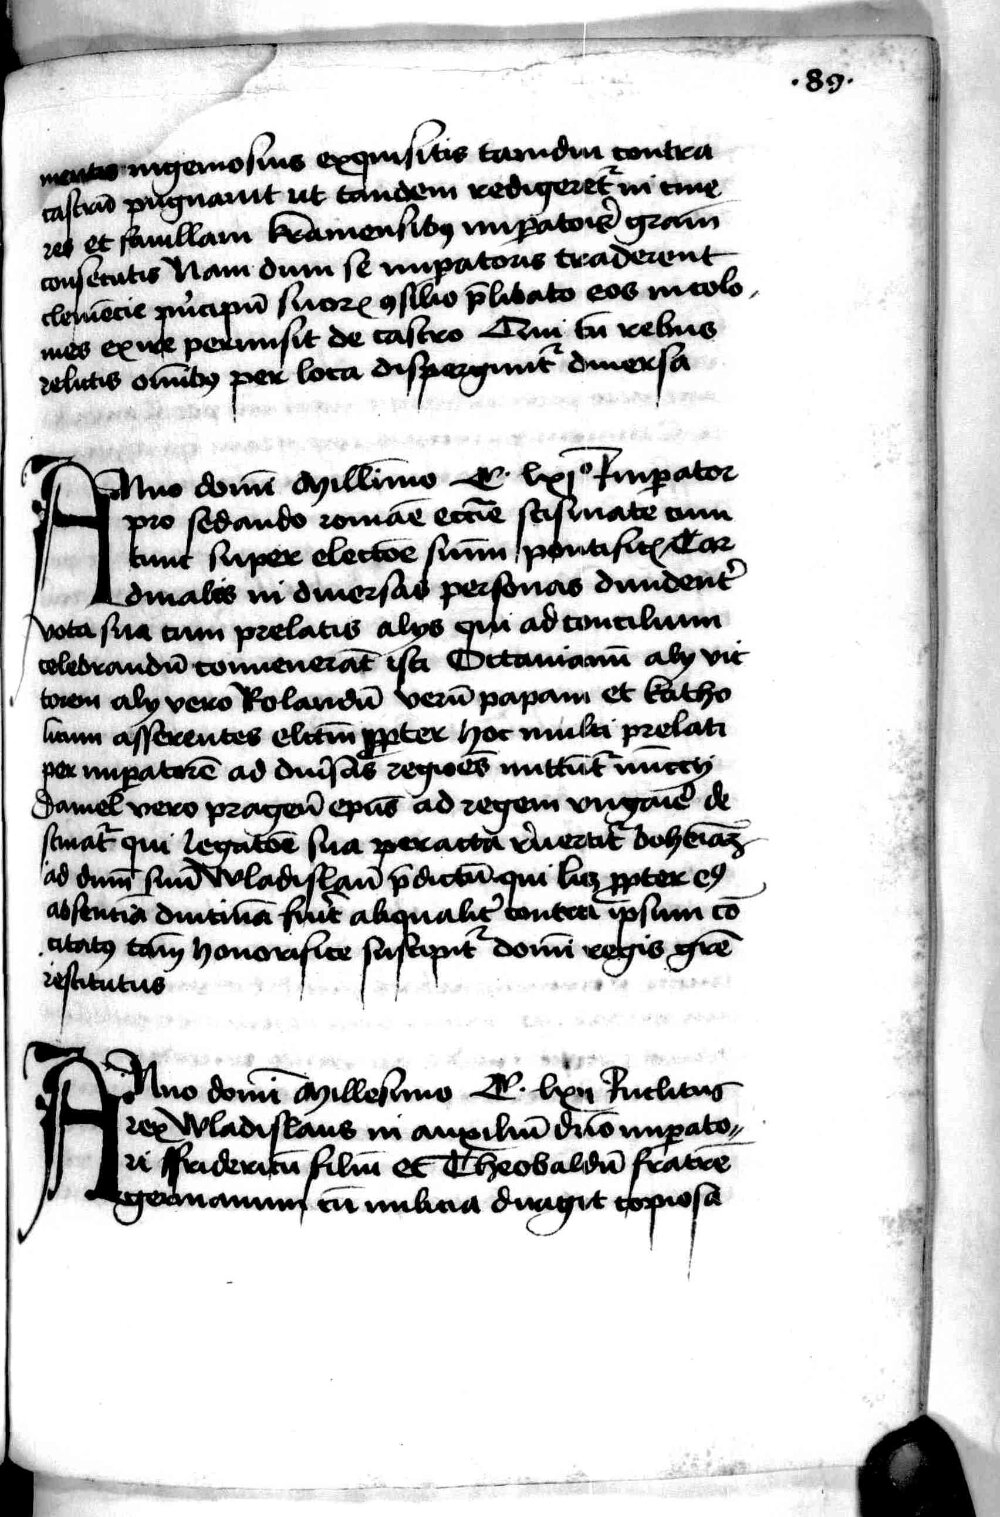 ·89·
mentis ingeniosius exquisitis tamdiu contra
castrū pugnauit ut tandem redigeretr in cine
res et fauillam kramensibꝯ imꝑatoris graꝫ
consecutis Nam dum se imꝑatoris traderent
clemēcie pͥncipū suorꝝ ꝯsilio p̄libato eos incolo,
mes exire permisit de castro Qui cū rebus
relictis om̄ibꝯ per loca disperguntr diuersa
ANno domī Millimo C. lxjº Imꝑator
pro sedando romāe eccīe scismate cum
tunc super electōe summi pontificꝭ Car
dinales in diuersas personas diuiderēt
vota sua cum prelatis alijs qui ad concilium
celebrandū conuenerāt isti Octauianū alij vic
torem alij vero Rolandū verū papam et katho
licum asserentes elcm̄ ꝓpter hoc multi prelati
per imꝑatorē ad diuͥsas regiōēs mittūtr nūccij
Daniel vero pragen̄ ep̄us ad regem vngarie de
stinatr qui legatōe sua peracta rͥuertitr boheīaꝫ
ad dnm̄ suū Wladislaū p̄dictū qui licꝫ ꝓpter eiꝯ
absentiā diutinā fuͥt aliqualitͥ contra ipsum cō
citatꝯ tam̄ honorifice suscipitr domī regis grē
restitutus
ANno domī Millesimo C. lxij Inclitus
rex Wladislaus in auxiliū dn̄o imꝑato⸗
ri ffridericū filiū et Theobaldū fratrē
germanum cū milicia dirigit copiosa